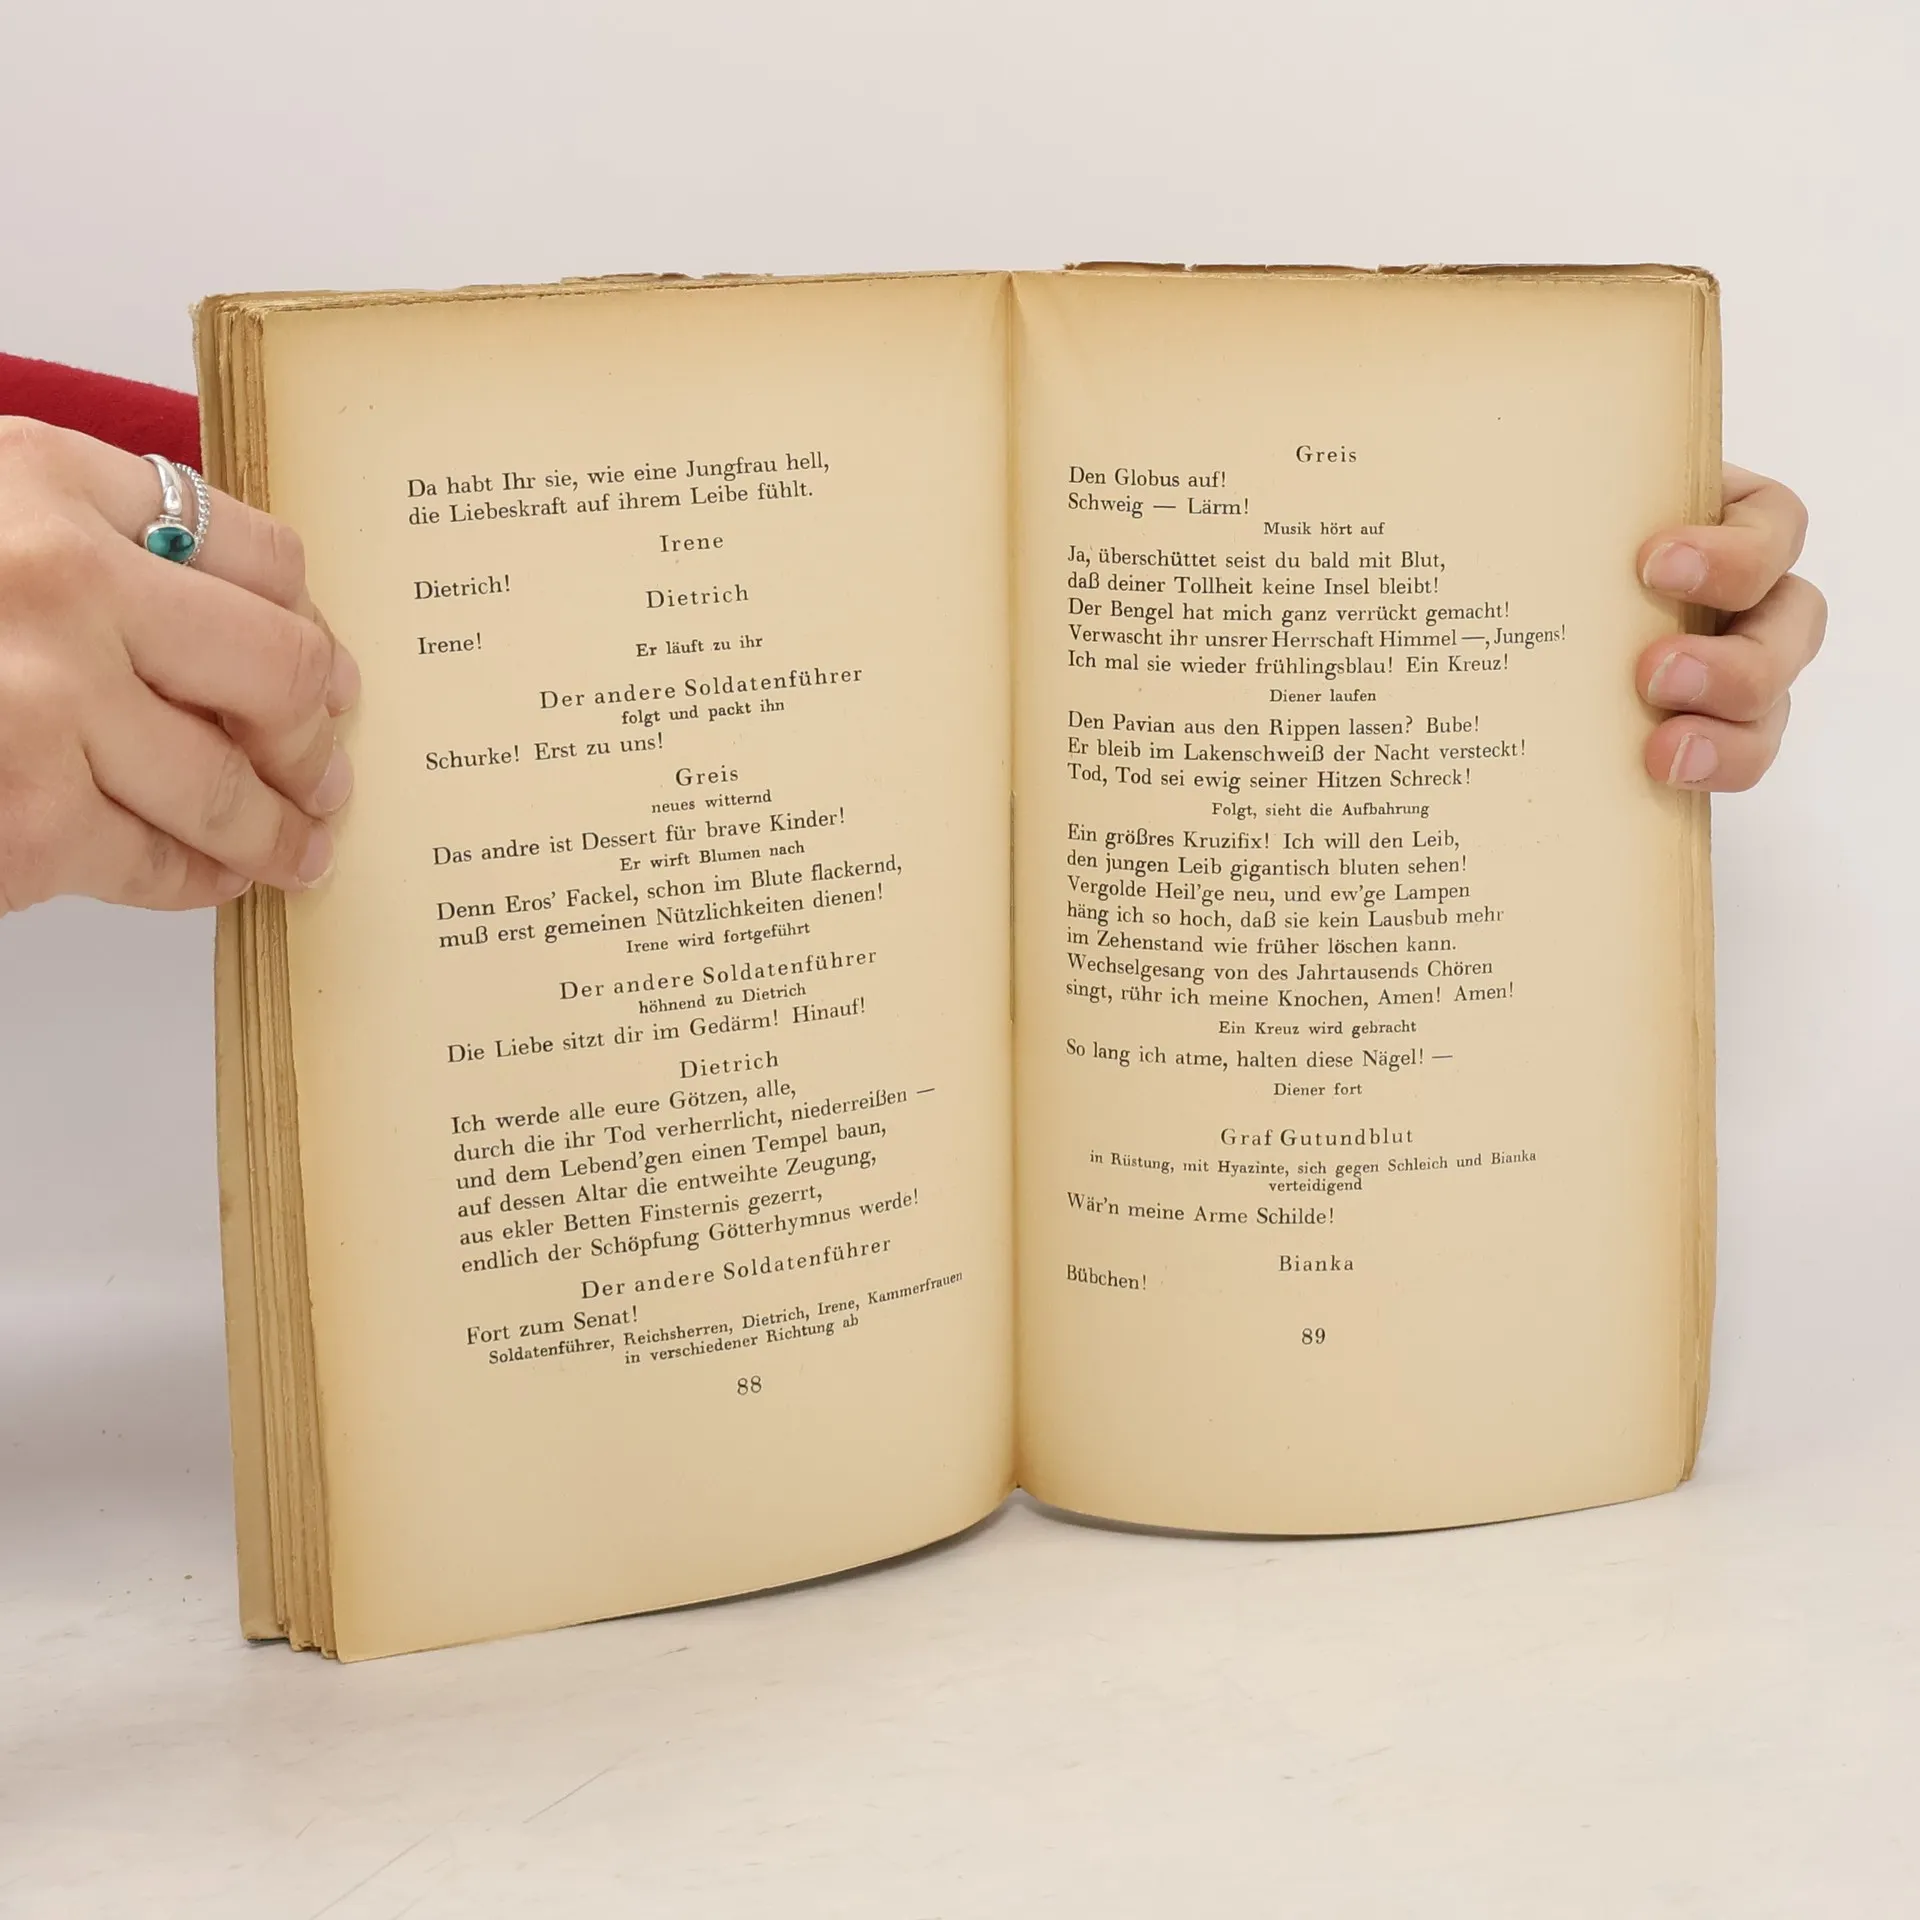 Da habt Ihr sie, wie eine Jungfrau hell,
die Liebeskraft auf ihrem Leibe fühlt.
Irene
Dietrich!
Dietrich
Irene!
Er läuft zu ihr
Der andere Soldatenführer
folgt und packt ihn
Schurke! Erst zu uns!
Greis
neues witternd
Das andre ist Dessert für brave Kinder!
Er wirft Blumen nach
Denn Eros' Fackel, schon im Blute flackernd,
muß erst gemeinen Nützlichkeiten dienen!
Irene wird fortgeführt
Der andere Soldatenführer
höhnend zu Dietrich
Die Liebe sitzt dir im Gedärm! Hinauf!
Dietrich
Ich werde alle eure Götzen, alle,
durch die ihr Tod verherrlicht, niederreißen —
und dem Lebend'gen einen Tempel baun,
auf dessen Altar die entweihte Zeugung,
aus ekler Betten Finsternis gezerrt,
endlich der Schöpfung Götterhymnus werde!
Der andere Soldatenführer
Fort zum Senat!
Soldatenführer, Reichsherren, Dietrich, Irene, Kammerfrauen
in verschiedener Richtung ab
88
Greis
Den Globus auf!
Schweig — Lärm!
Musik hört auf
Ja, überschüttet seist du bald mit Blut,
daß deiner Tollheit keine Insel bleibt!
Der Bengel hat mich ganz verrückt gemacht!
Verwascht ihr unsrer Herrschaft Himmel —, Jungens!
Ich mal sie wieder frühlingsblau! Ein Kreuz!
Diener laufen
Den Pavian aus den Rippen lassen? Bube!
Er bleib im Lakenschweiß der Nacht versteckt!
Tod, Tod sei ewig seiner Hitzen Schreck!
Folgt, sieht die Aufbahrung
Ein größres Kruzifix! Ich will den Leib,
den jungen Leib gigantisch bluten sehen!
Vergolde Heil'ge neu, und ew'ge Lampen
häng ich so hoch, daß sie kein Lausbub mehr
im Zehenstand wie früher löschen kann.
Wechselgesang von des Jahrtausends Chören
singt, rühr ich meine Knochen, Amen! Amen!
Ein Kreuz wird gebracht
So lang ich atme, halten diese Nägel! —
Diener fort
Graf Gutundblut
in Rüstung, mit Hyazinte, sich gegen Schleich und Bianka
verteidigend
Wär'n meine Arme Schilde!
Bianka
Bübchen!
89